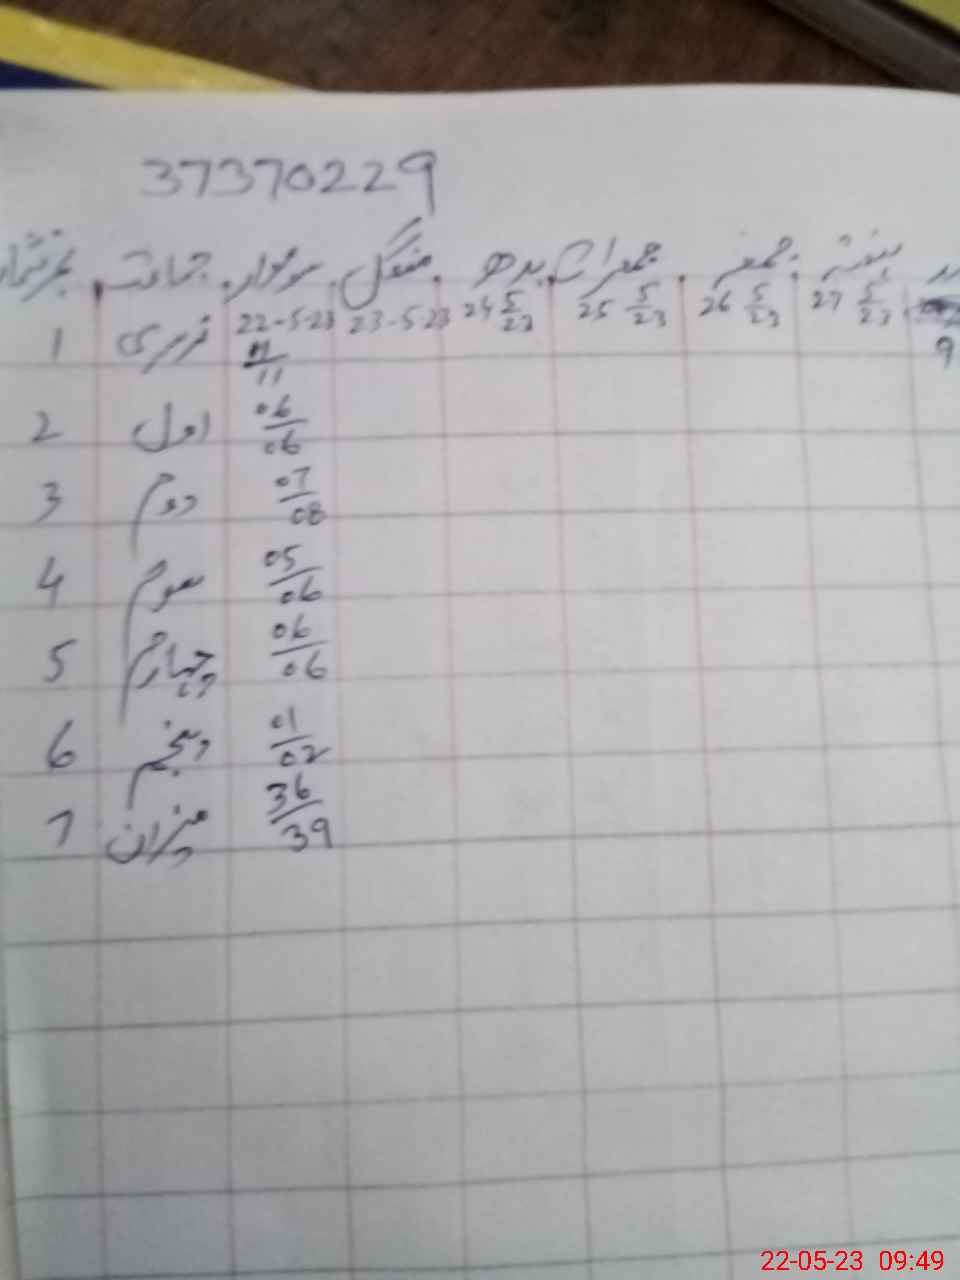 37370229
نمبر شمار جماعت سوموار منگل بدھ جمعرات جمعہ ہفتہ
22-5-23 23-5-23 24 5/23 25 5/23 26 5/23 27 5/23
1 نرسری 11/11 9
2 اول 06/06
3 دوم 07/08
4 سوم 05/06
5 چہارم 06/06
6 پنجم 01/02
7 میزان 36/39
22-05-23 09:49